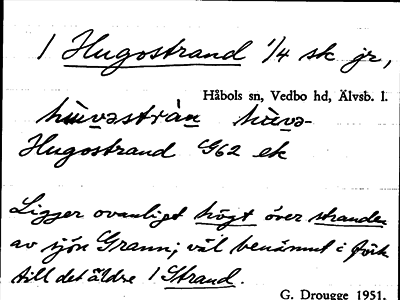 1 Hugostrand 1/4 sk jr,
Håbols sn, Vedbo hd, Älvsb. l.
Hugostrand G62 ek
Ligger ovanligt högt över stranden
av sjön Grann; väl benämnt i förh
till det äldre 1 Strand.
G. Drougge 1951.